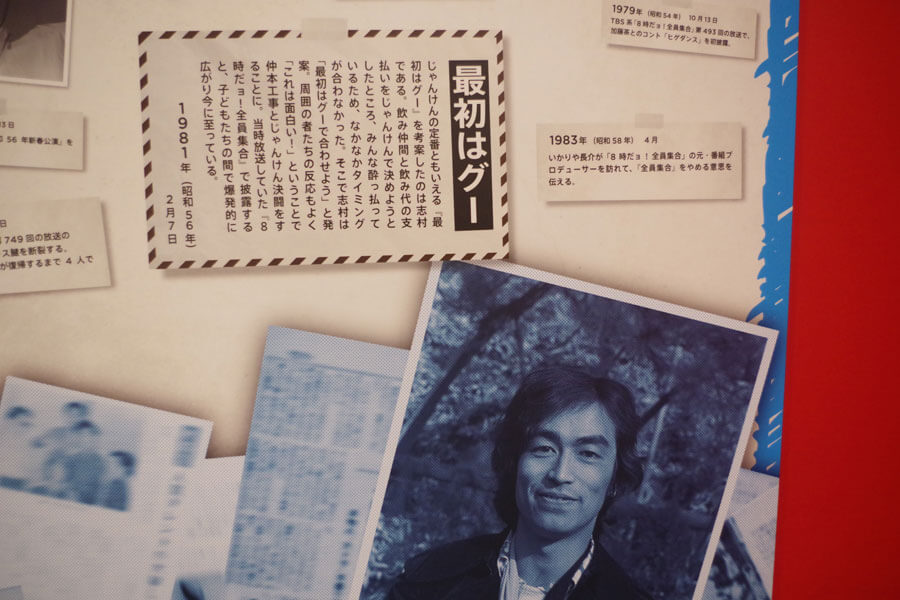 1979年 (昭和54年) 10月13日
TBS系「8時だョ!全員集合」第493回の放送で、
加藤茶とのコント「ヒゲダンス」を初披露。
最初はグー
じゃんけんの定番ともいえる『最
初はグー』を考案したのは志村
である。飲み仲間と飲み代の支
払いをじゃんけんで決めようと
したところ、みんな酔っ払って
いるため、なかなかタイミング
が合わなかった。そこで志村は
「最初はグーで合わせよう」と発
案。周囲の者たちの反応もよく
「これは面白い！」ということで
仲本工事とじゃんけん決闘をす
ることに。当時放送していた『8
時だョ！全員集合』で披露する
と、子どもたちの間で爆発的に
広がり今に至っている。
1981年(昭和56年)
2月7日
1983年 (昭和58年) 4月
いかりや長介が「8時だョ!全員集合」の元・番組プ
ロデューサーを訪れて、「全員集合」をやめる意思を
伝える。
3日
56年新春公演」を
日
749回の放送の
ス腱を断裂する。
が復帰するまで4人で